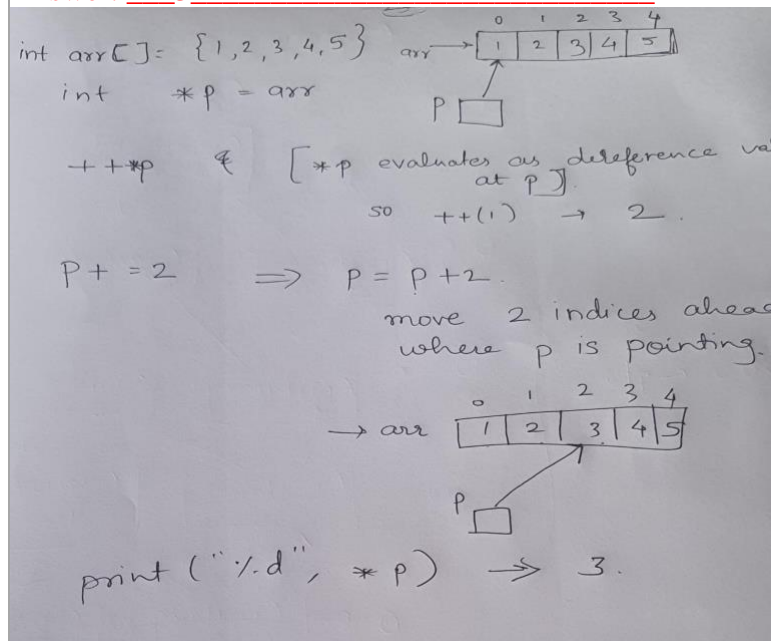 0 1 2 3 4
int arr[]= {1,2,3,4,5} arr → 1 2 3 4 5
int *p = arr
P
++*p & [*p evaluates as dereference va
at p].
so ++(1) → 2.
P+ =2 ⇒ P = P +2.
move 2 indices ahead
where p is pointing.
0 1 2 3 4
→ arr 1 2 3 4 5
P
print ("%d", *p) → 3.